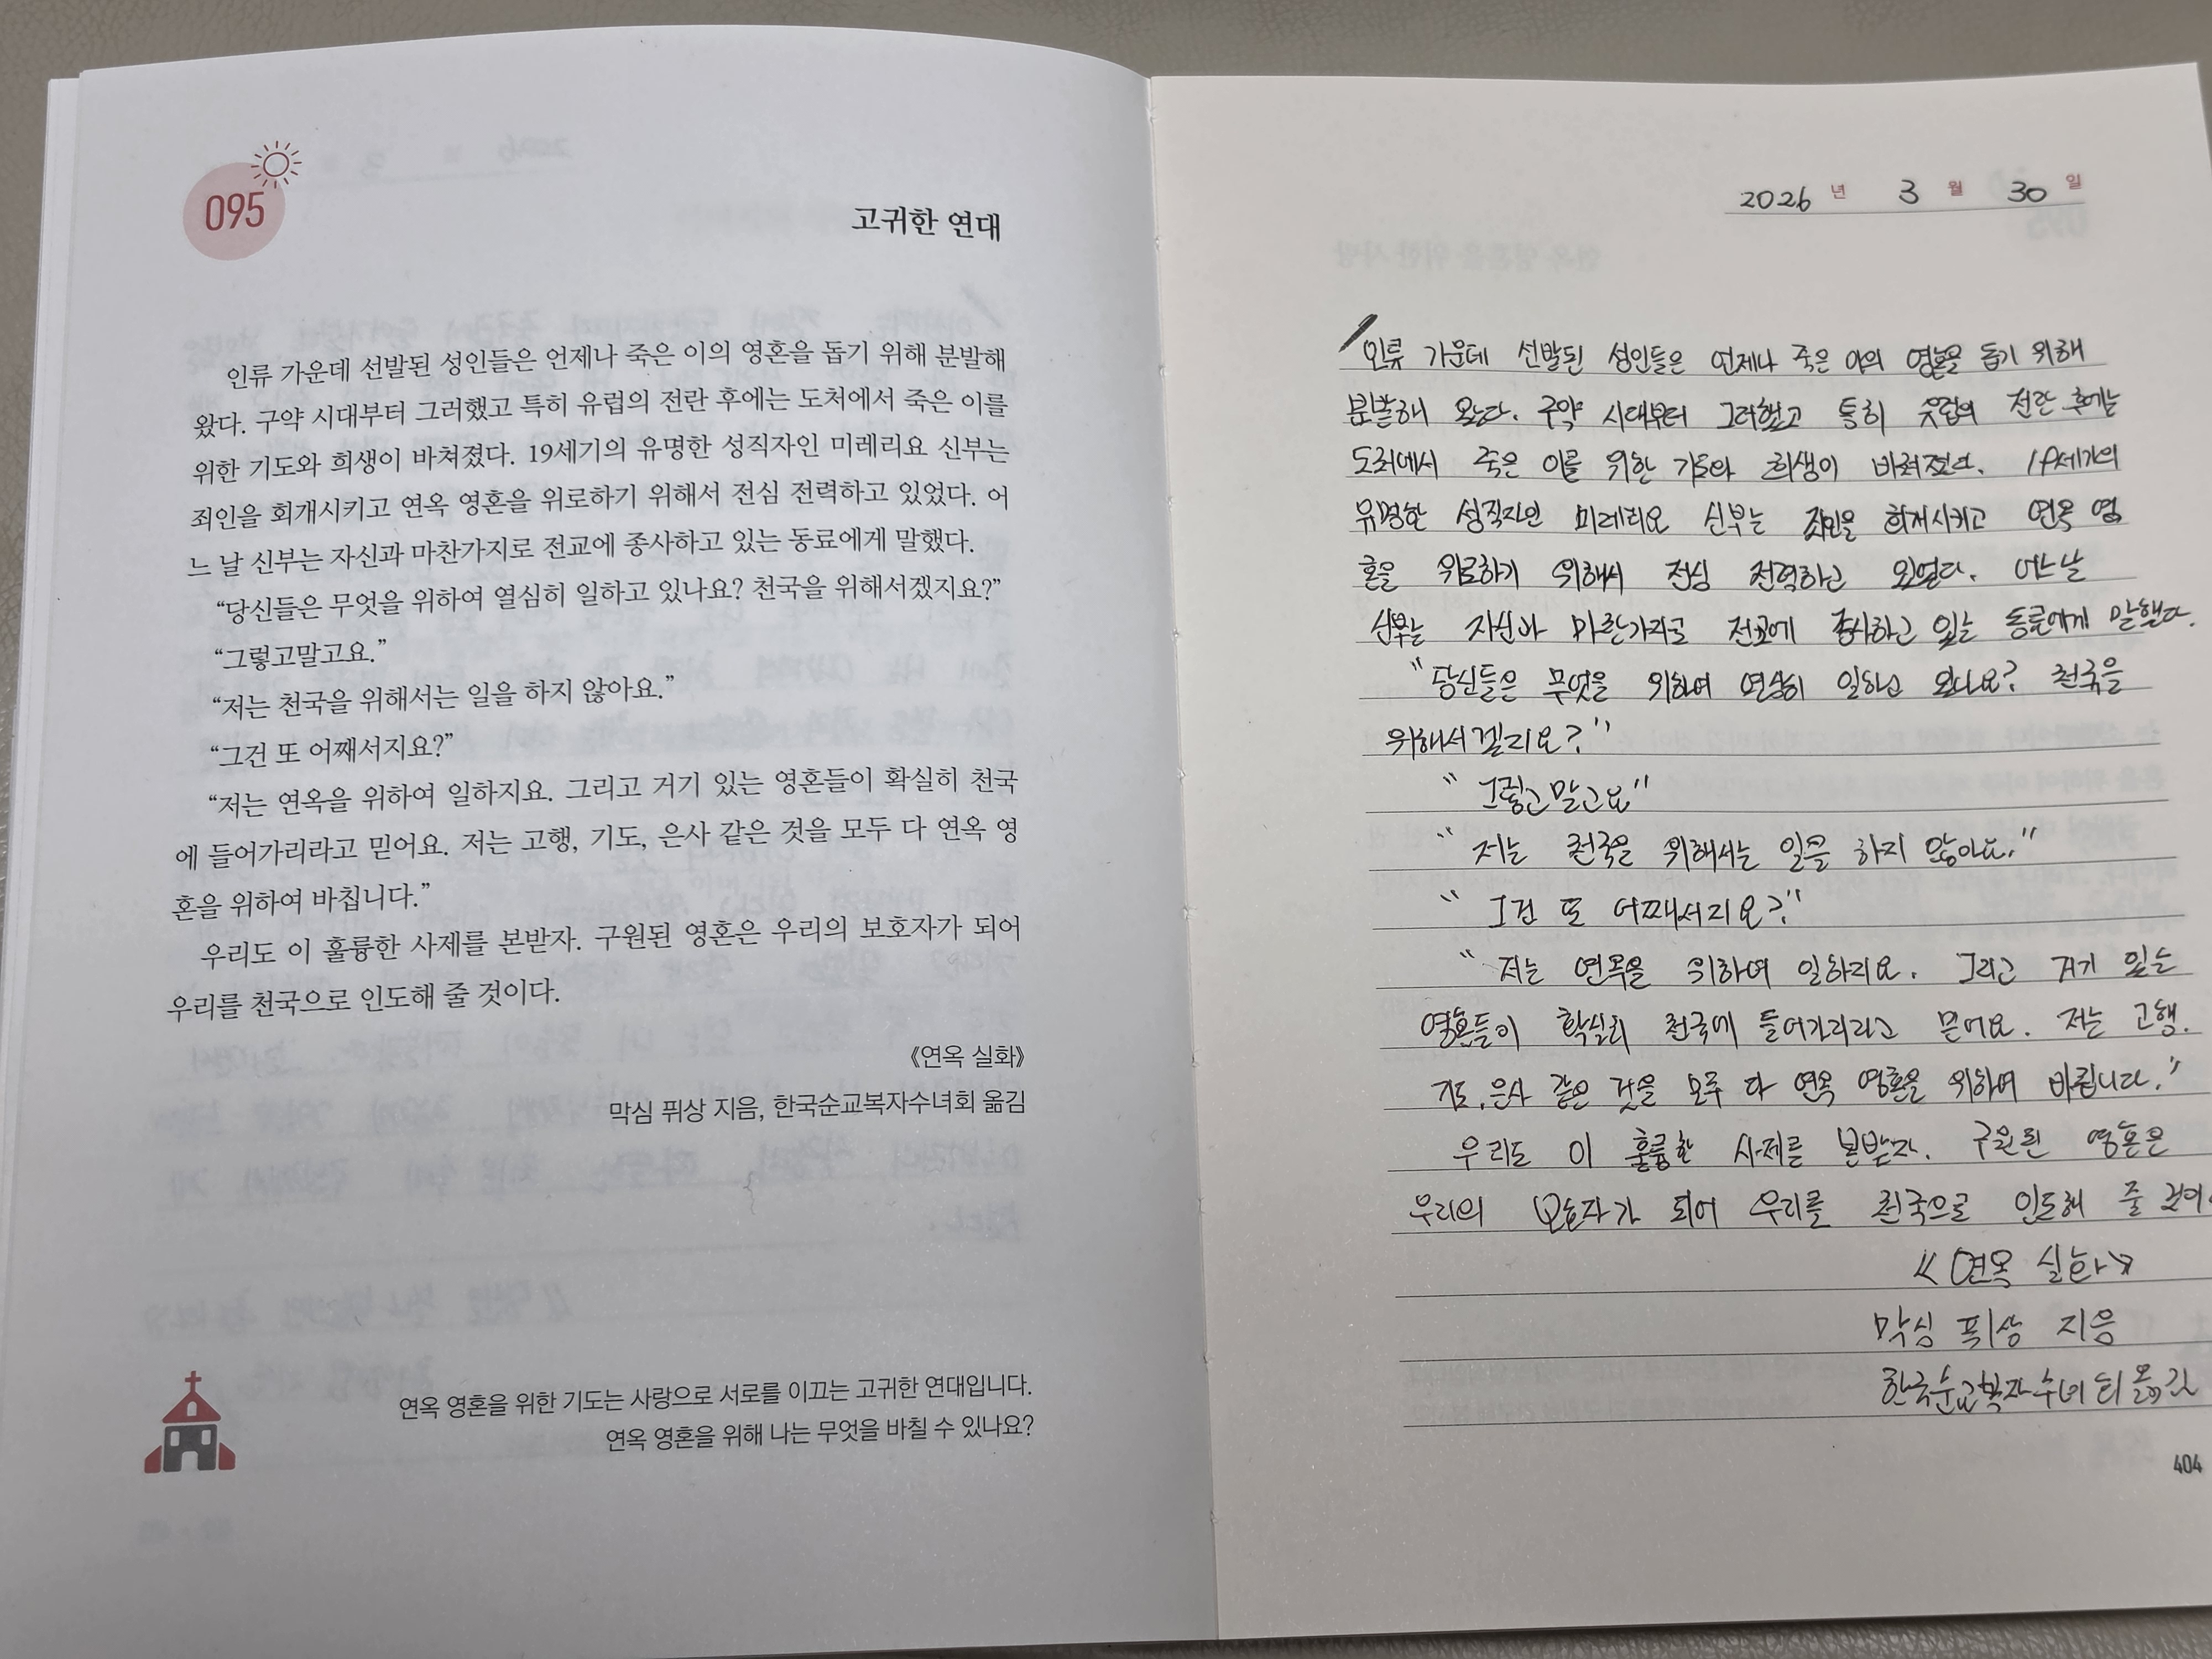 095
고귀한 연대
인류 가운데 선발된 성인들은 언제나 죽은 이의 영혼을 돕기 위해 분발해
왔다. 구약 시대부터 그러했고 특히 유럽의 전란 후에는 도처에서 죽은 이를
위한 기도와 희생이 바쳐졌다. 19세기의 유명한 성직자인 미레리요 신부는
죄인을 회개시키고 연옥 영혼을 위로하기 위해서 전심 전력하고 있었다. 어
느 날 신부는 자신과 마찬가지로 전교에 종사하고 있는 동료에게 말했다.
“당신들은 무엇을 위하여 열심히 일하고 있나요? 천국을 위해서겠지요?”
“그렇고말고요.”
“저는 천국을 위해서는 일을 하지 않아요.”
“그건 또 어째서지요?”
“저는 연옥을 위하여 일하지요. 그리고 거기 있는 영혼들이 확실히 천국
에 들어가리라고 믿어요. 저는 고행, 기도, 은사 같은 것을 모두 다 연옥 영
혼을 위하여 바칩니다.”
우리도 이 훌륭한 사제를 본받자. 구원된 영혼은 우리의 보호자가 되어
우리를 천국으로 인도해 줄 것이다.
《연옥 실화》
막심 퓌상 지음, 한국순교복자수녀회 옮김
연옥 영혼을 위한 기도는 사랑으로 서로를 이끄는 고귀한 연대입니다.
연옥 영혼을 위해 나는 무엇을 바칠 수 있나요?
2026 년 3 월 30 일
인류 가운데 선발된 성인들은 언제나 죽은 이의 영혼을 돕기 위해
분발해 왔다. 구약 시대부터 그러했고 특히 유럽의 전란 후에는
도처에서 죽은 이를 위한 기도와 희생이 바쳐졌다. 19세기의
유명한 성직자인 미레리요 신부는 죄인을 회개시키고 연옥 영
혼을 위로하기 위해서 전심 전력하고 있었다. 어느날
신부는 자신과 마찬가지로 전교에 종사하고 있는 동료에게 말했다.
"당신들은 무엇을 위하여 열심히 일하고 있나요? 천국을
위해서겠지요?"
"그렇고말고요"
"저는 천국을 위해서는 일을 하지 않아요."
"그건 또 어째서지요?"
"저는 연옥을 위하여 일하지요. 그리고 거기 있는
영혼들이 확실히 천국에 들어가리라고 믿어요. 저는 고행.
기도, 은사 같은 것을 모두 다 연옥 영혼을 위하여 바칩니다."
우리도 이 훌륭한 사제를 본받자. 구원된 영혼은
우리의 보호자가 되어 우리를 천국으로 인도해 줄 것이
《연옥 실화》
막심 퓌상 지음
한국순교복자수녀회 옮김
404